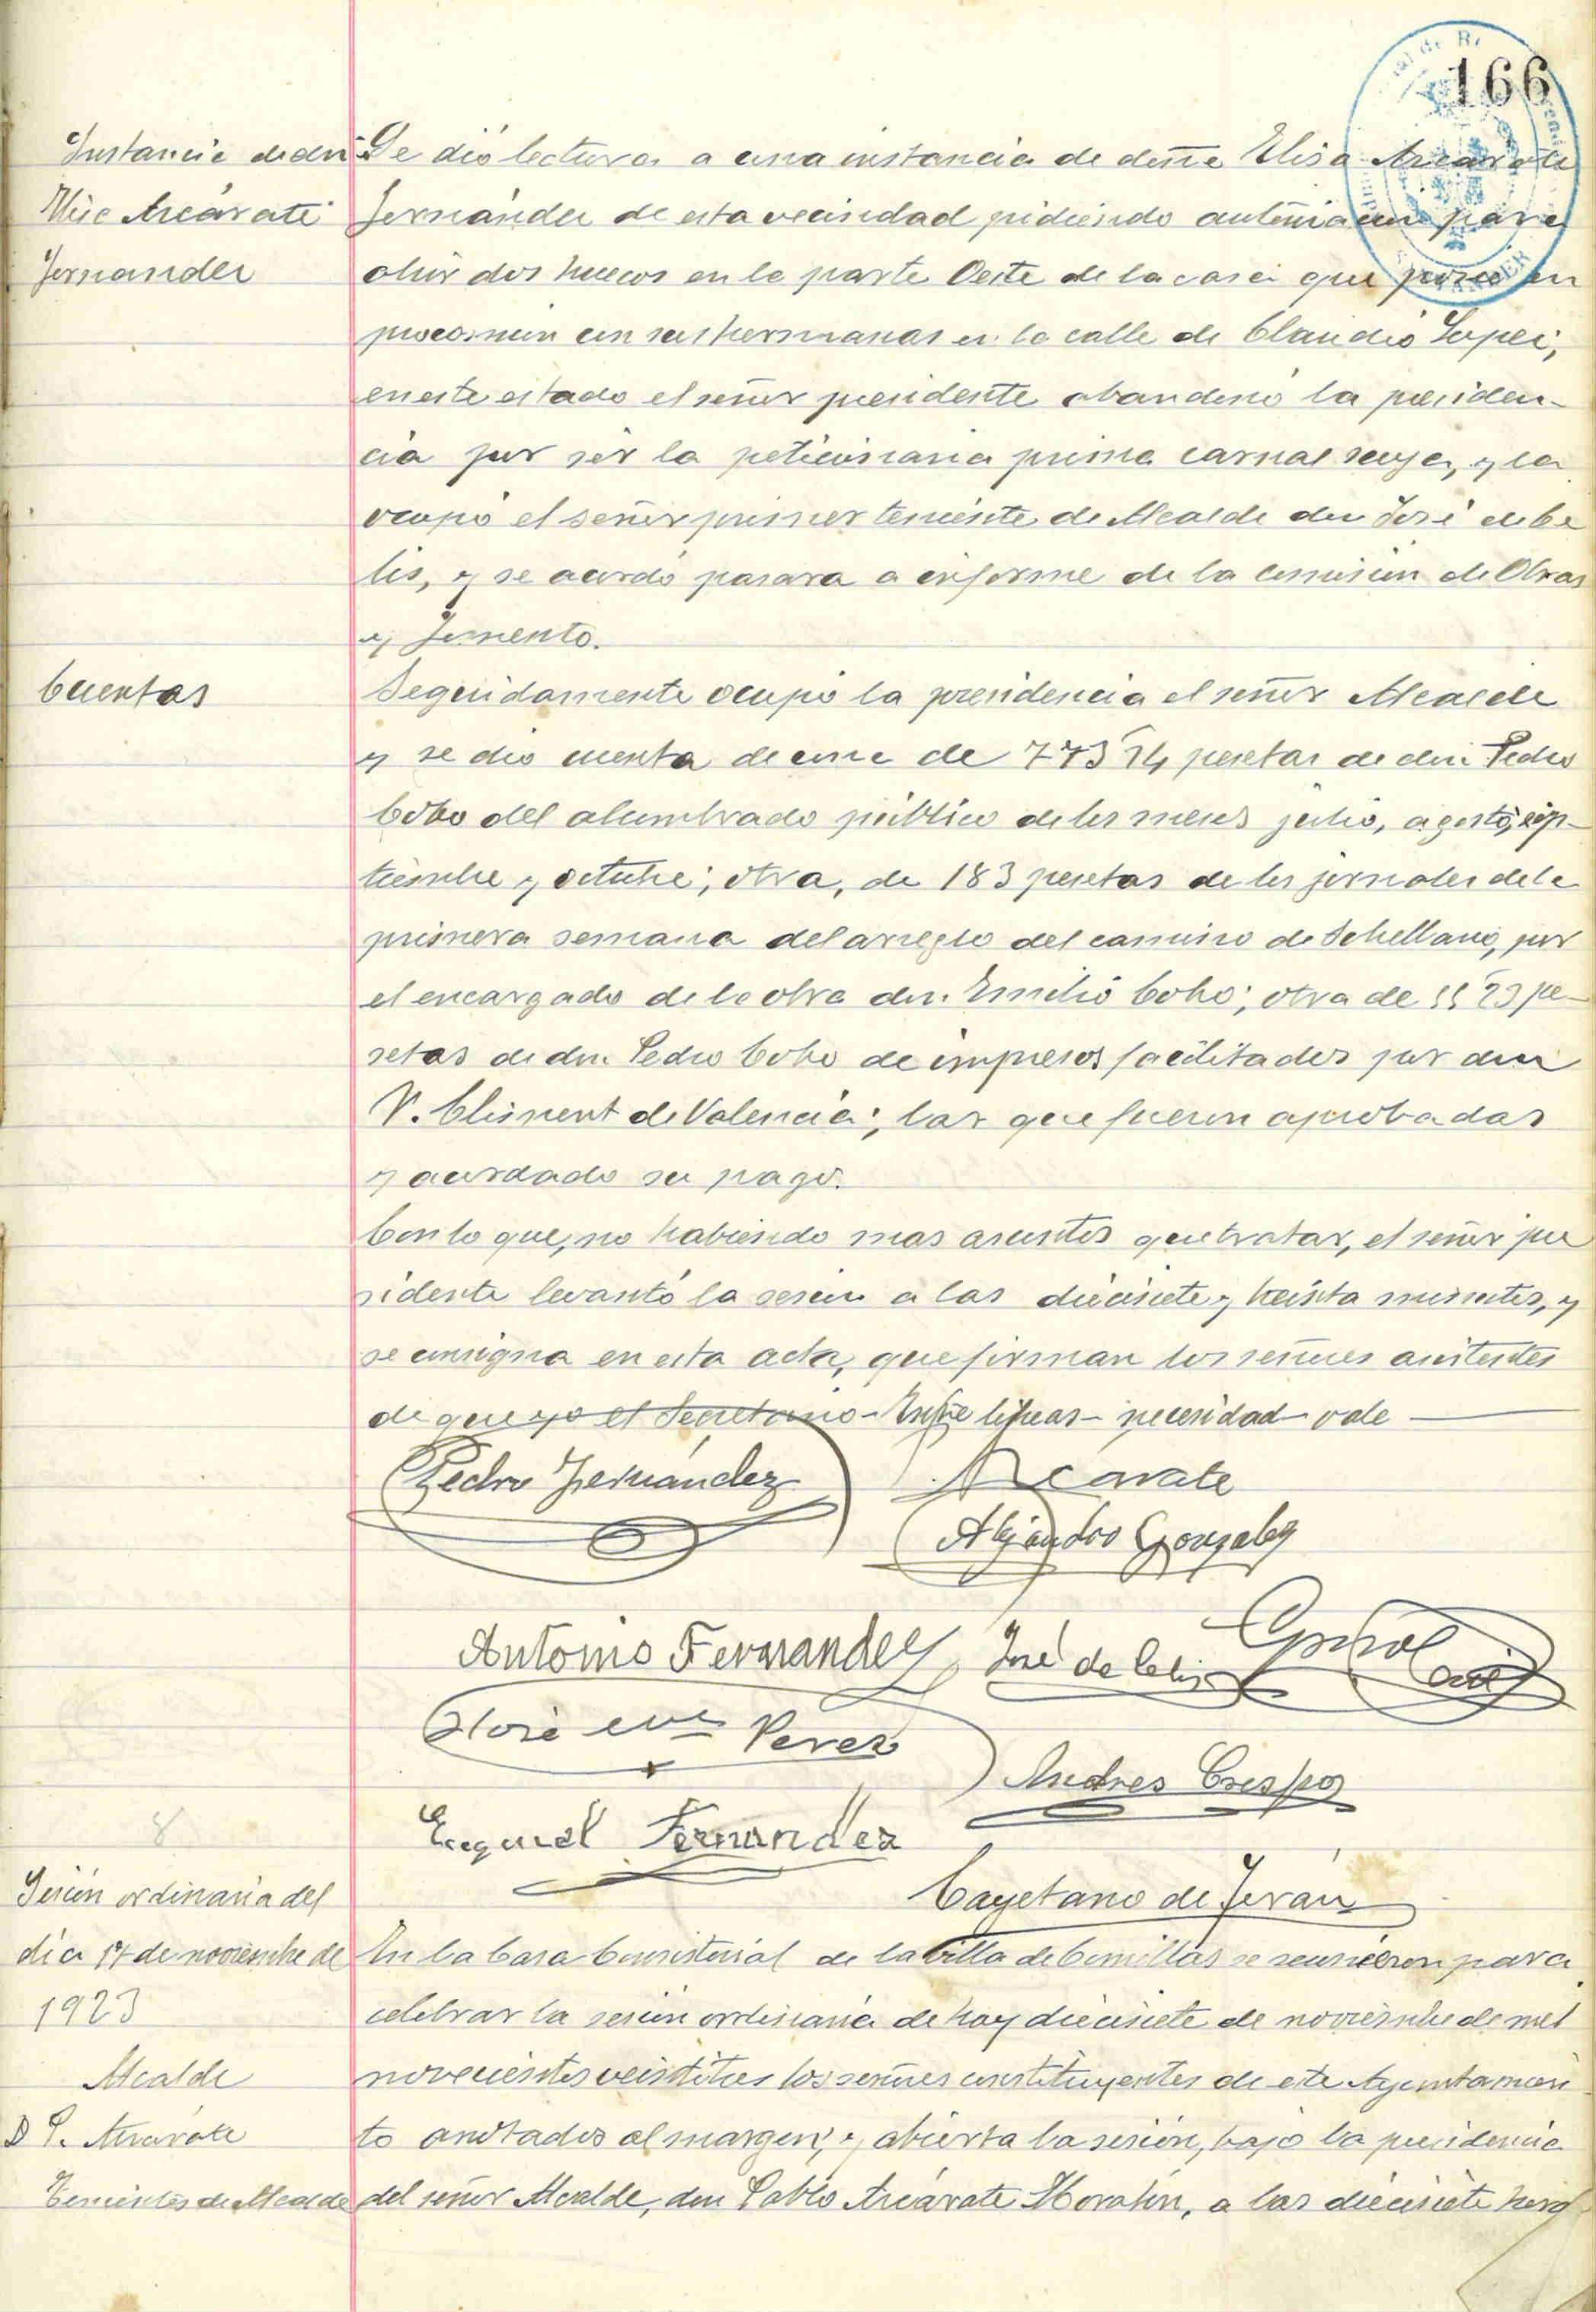 166
Instancia de dñ
Elisa Azcárate
Fernandez
Se dió lectura a una instancia de doña Elisa Azcarate
Fernández de esta vecindad pidiendo autorización para
abrir dos huecos en la parte Oeste de la casa que posee en
procomún con sus hermanas en la calle de Claudio Lopez;
en este estado el señor presidente abandonó la presiden-
cia por ser la peticionaria prima carnal suya, y la
ocupó el señor primer teniente de Alcalde don José de Ce
lis, y se acordó pasara a informe de la comisión de Obras
y Fomento.
Cuentas
Seguidamente ocupó la presidencia el señor Alcalde
y se dió cuenta de una de pesetas de don Pedro
Cobo del alumbrado público de los meses julio, agosto, sep-
tiembre y octubre; otra, de 183 pesetas de los jornales de la
primera semana del arreglo del camino de por
el encargado de la obra don Emilio Cobo; otra de pe-
setas de don Pedro Cobo de impresos facilitados por don
V. Climent de Valencia; las que fueron aprobadas
y acordado su pago.
Con lo que, no habiendo mas asuntos que tratar, el señor pre
sidente levantó la sesión a las diecisiete y treinta minutos, y
se consigna en esta acta, que firman los señores asistentes
de que yo el Secretario - Entre líneas - necesidad - vale
Pedro Fernández
Azcárate
Alejandro Gonzalez
Antonio Fernandez
José de Celis
José Perez
Andres Crespo
Ezequiel Fernandez
Cayetano de Terán
8
Sesión ordinaria del
día 17 de noviembre de
1923
Alcalde
D P. Azcárate
Tenientes de Alcalde
En la Casa Consistorial de la villa de Comillas se reunieron para
celebrar la sesión ordinaria de hoy diecisiete de noviembre de mil
novecientos veintitres los señores constituyentes de este Ayuntamien
to anotados al margen; y, abierta la sesión, bajo la presidencia
del señor Alcalde, don Pablo Azcárate Moratín, a las diecisiete horas